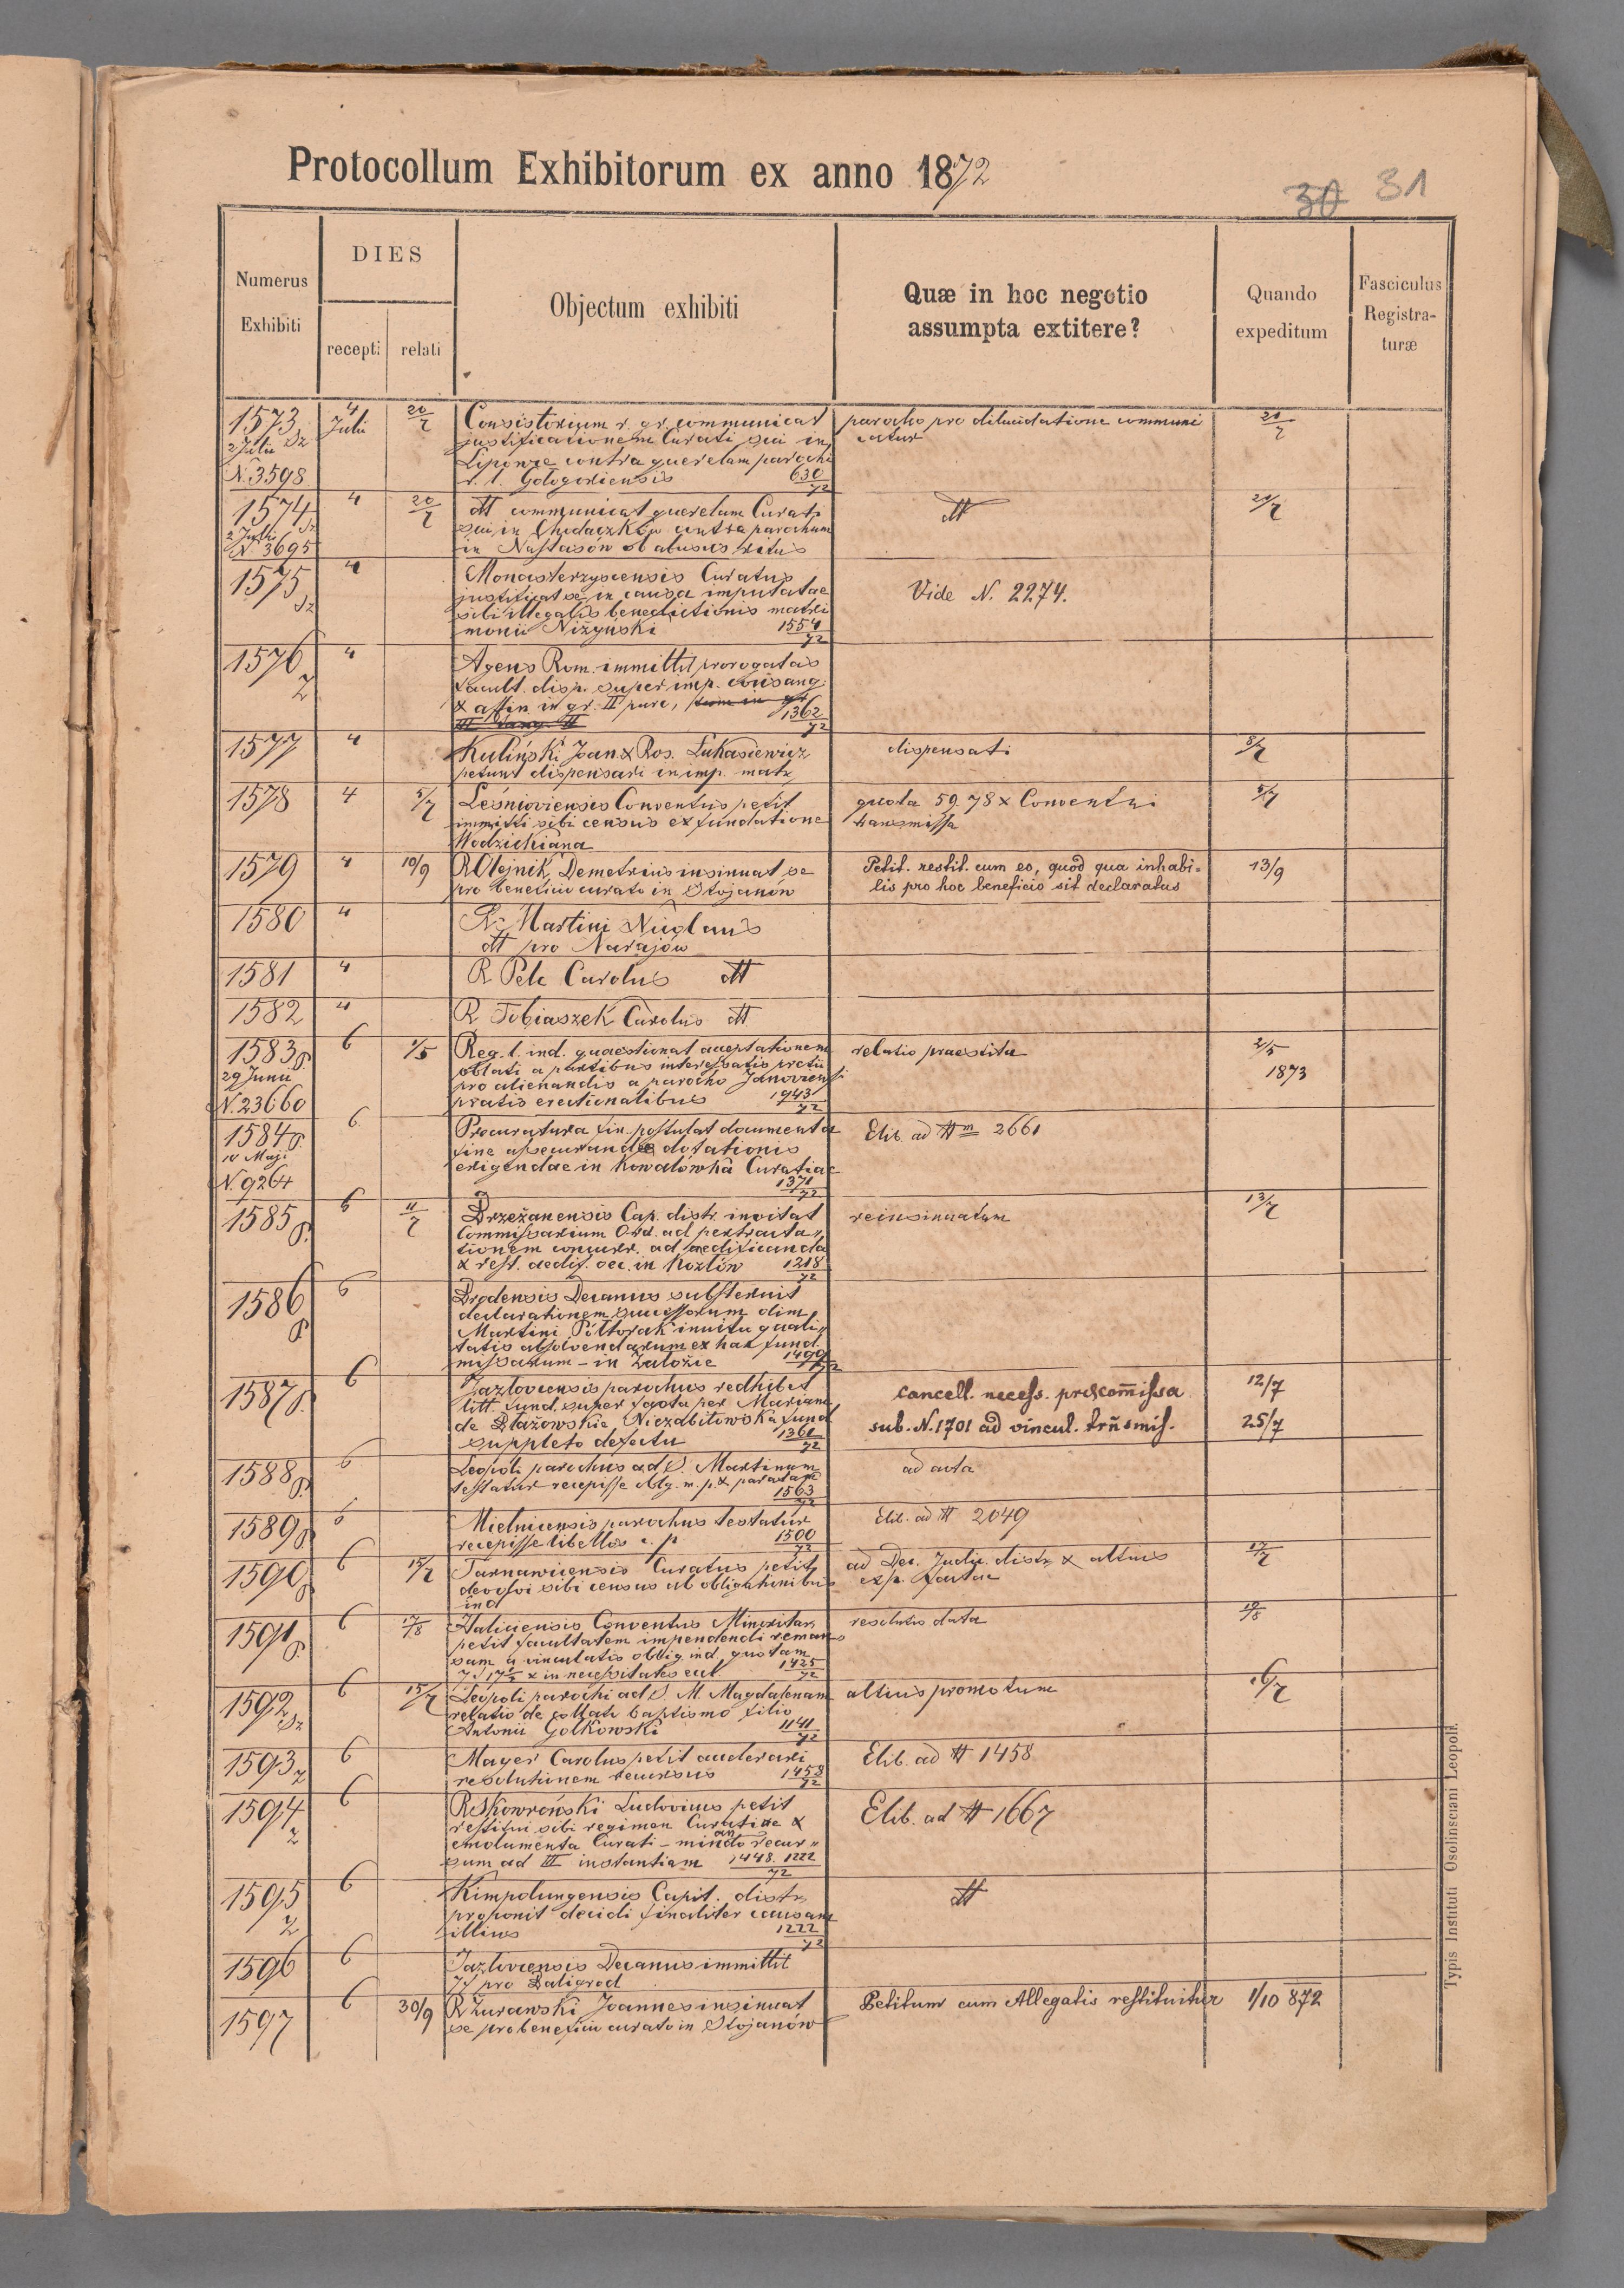 Protocollum Exhibitorum ex anno 1872
30 31
Numerus Exhibiti
DIES
recepti
relati
Objectum exhibiti
Quæ in hoc negotio assumpta extitere?
Quando expeditum
Fasciculus Registra-turæ
1573 4 Julii 20/7 Consistorium r. gr. communicat parocho pro dilucidatione communi 20/7
2 Julii justificationem Curati sui in catur
Liponce contra querelam parochi
N. 3598 r. l. Gologoriensis 630/72
1574 4 20/7 dtt communicat querelam Curati dtt 20/7
2 Julii sui in Chodaczków contra parochum
N. 3695 in Nastasów ob abusus ritus
1575 4 Monasterzyscensis Curatus
justificat se in causa imputatae Vide N. 2274.
sibi illegalis benedictionis matri
monii Niżyński 1554/72
1576 4 Agens Rom. immittit prorogatas
facult. disp. super imp. consang.
& affin in gr. II pure, 1362/72
1577 4 Kuliński Joan & Ros. Łukasiewicz dispensati 8/7
petunt dispensari in imp. matr.
1578 4 5/7 Leśnioviensis Conventus petit quota 59.78 x Conventui 5/7
immitti sibi census ex fundatione transmissa
Wodzickiana
1579 4 10/9 R Olejnik Demetrius insinuat se Petit. restit. cum eo, quod qua inhabi= 13/9
pro beneficio curato in Stojanów lis pro hoc beneficio sit declaratus
1580 4 R. Martini Nicolaus
dtt pro Narajów
1581 4 R Pelc Carolus dtt
1582 4 R Tobiaszek Carolus dtt
1583 6 2/5 Reg. l. ind. quaestionat acceptationem relatio praestita 2/5
29 Junii oblati a partibus interessatis pretii 1873
pro alienandis a parocho Janoviensi
N. 23660 pratis erectionalibus 1943/72
1584 6 Procuratura fin. postulat documenta Elib. ad # 2661
10 Maji fine assecurandae dotationis
erigendae in Kowalówka Curatiae
N. 9264 1371/72
1585 6 11/7 Brzeżanensis Cap. distr. invitat reinsinuatum 13/7
Commissarium Ord. ad pertracta„
tionem concurr. ad aedificanda
& rest. aedif. oec. in Kozłów 1218/72
1586 6 Brodensis Decanus substernit
declarationem successorum olim
Martini Półtorak intuitu quali„
tatis absolvendarum ex hac fund.
missarum – in Załoźce 1499/72
1587 6 Jazłoviensis parochus redhibet cancell. necess. praecom̄issa 12/7
litt. fund. super facta per Mariam
de Błażowskie Niezabitowska fund sub. N. 1701 ad vincul. trñsmis. 25/7
suppleto defectu 1361/72
1588 6 Leopoli parochus ad S. Martinum ad acta
testatur recepisse oblig. m. p. & paratam
1563/72
1589 6 Mielnicensis parochus testatur Elib. ad # 2049
recepisse libellos c. p. 1500/72
1590 6 15/7 Tarnawicensis Curatus petit ad Dec. Judic. distr. & altius 17/7
devolvi sibi census ab obligationibus exp. factae
ind
1591 6 17/8 Haliciensis Conventus Minoritar. resolutio data 19/8
petit facultatem impendendi reman
sam a vinculatis oblig. ind. quotam
7 f 17½ x in necessitates eccl. 1425/72
1592 6 15/7 Leopoli parochi ad S. M. Magdalenam altius promotum 16/7
relatio de collati baptismo filio
Antonii Golkowski 1141/72
1593 6 Mayer Carolus petit accelerari Elib. ad # 1458
resolutionem recursus 1458/72
1594 6 R Skowroński Ludovicus petit Elib. ad # 1667
restitui sibi regimen Curatiae &
emolumenta Curati – minando recur„
sum ad III instantiam 1448. 1222/72
1595 6 Kimpolungensis Capit. distr. dtt
proponit decidi finaliter causam
illius 1222/72
1596 6 Jazłoviensis Decanus immittit
7 f pro Baligrod
1597 6 30/9 R Żurawski Joannes insinuat Petitum cum Allegatis restituitur 1/10 872
se pro beneficio curato in Stojanów
Typis Instituti Ossolinsciani Leopoli.